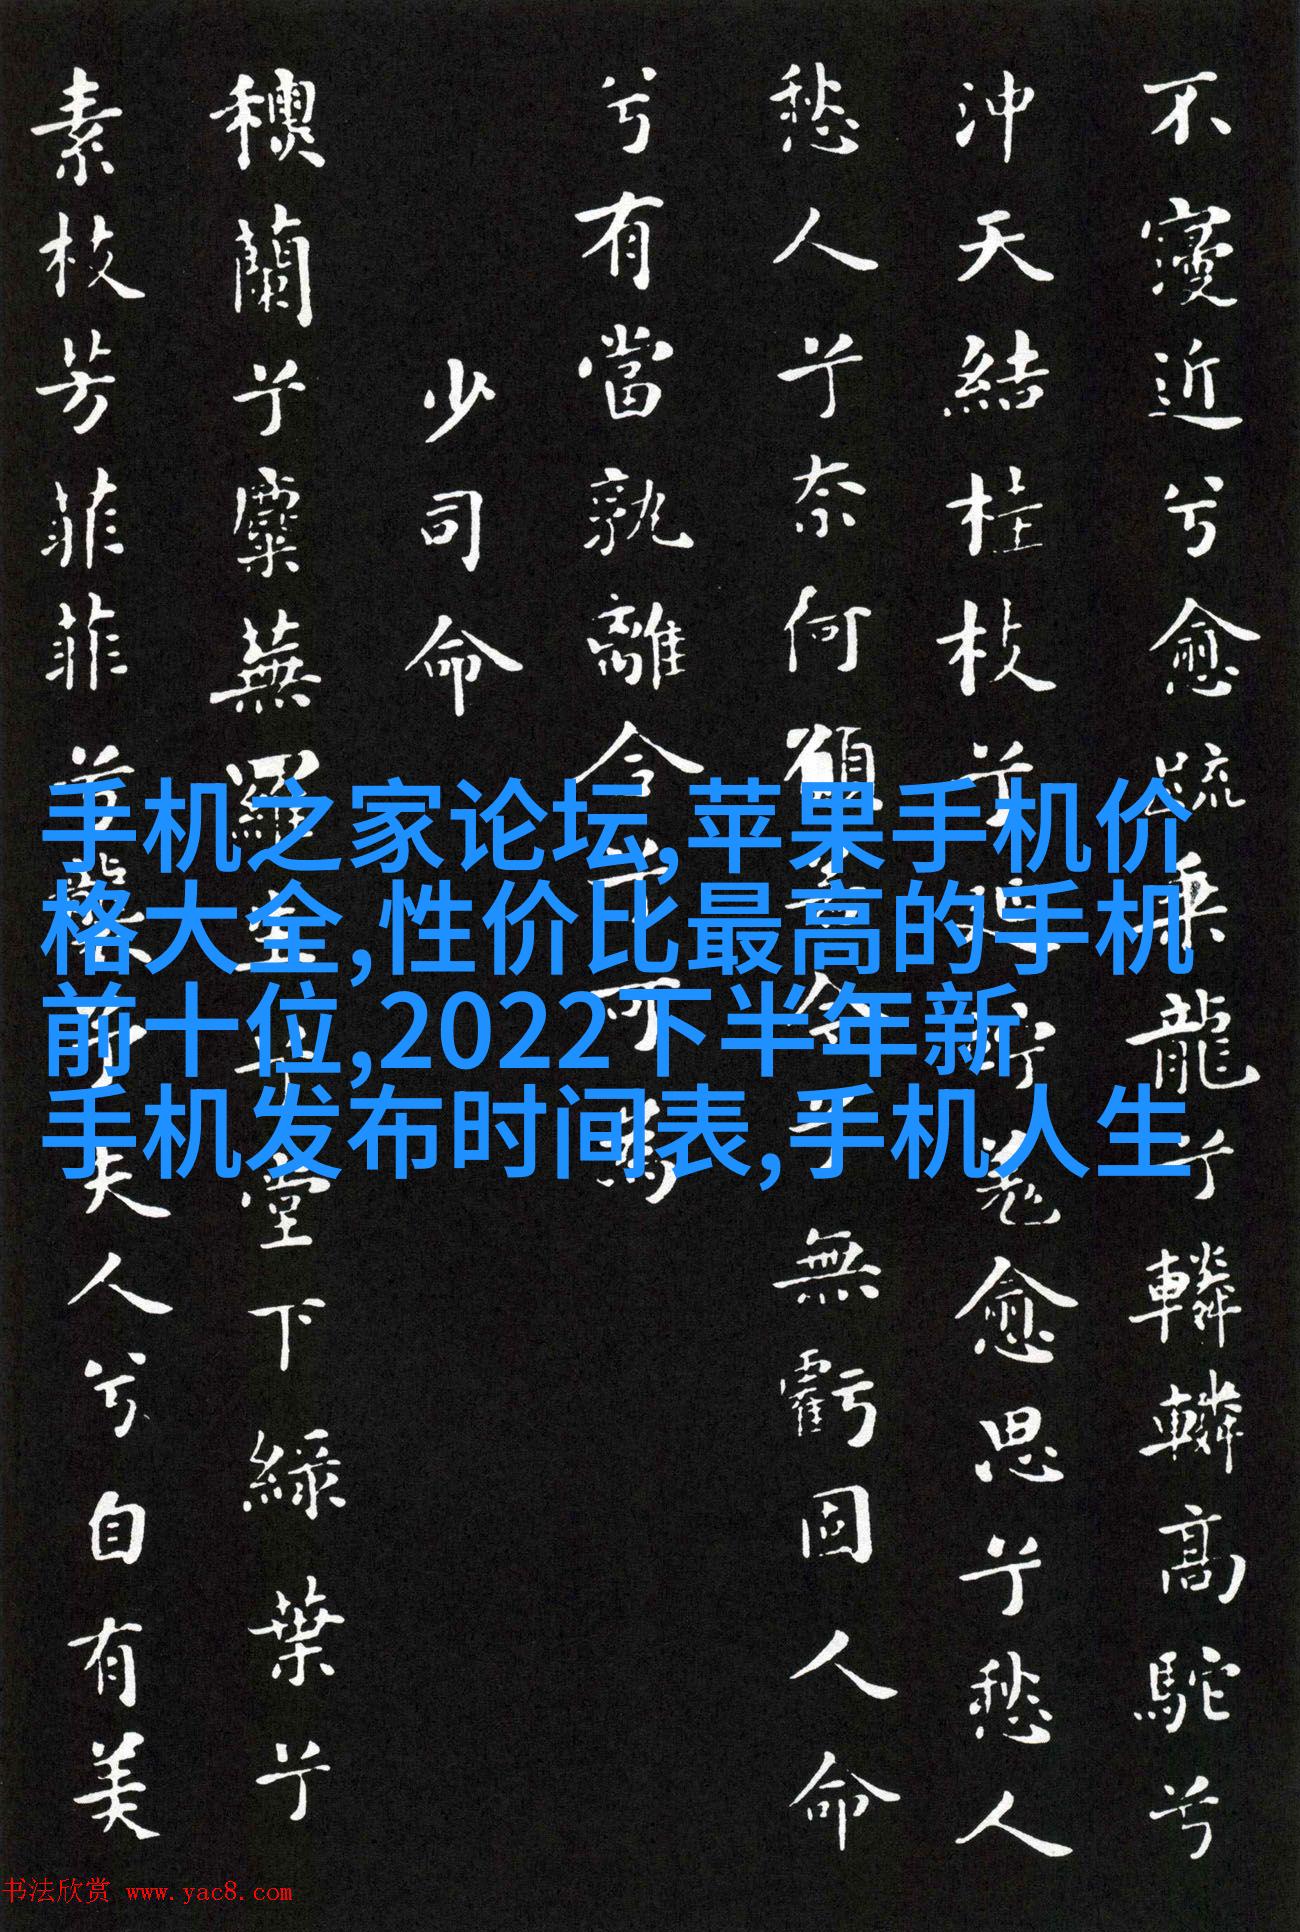 不寖近兮愈疏乘龍兮轔轔高駝兮
沖天結桂枝兮延竚羌愈思兮愁人
愁人兮奈何願若今兮無虧固人命
兮有當孰離合兮可為
少司命
蘭兮麋蕪羅生兮堂下綠葉兮
素枝芳菲菲兮襲予夫人兮自有美
手机之家论坛,苹果手机价
格大全,性价比最高的手机
前十位,2022下半年新
手机发布时间表,手机人生
书法欣赏 www.yac8.com